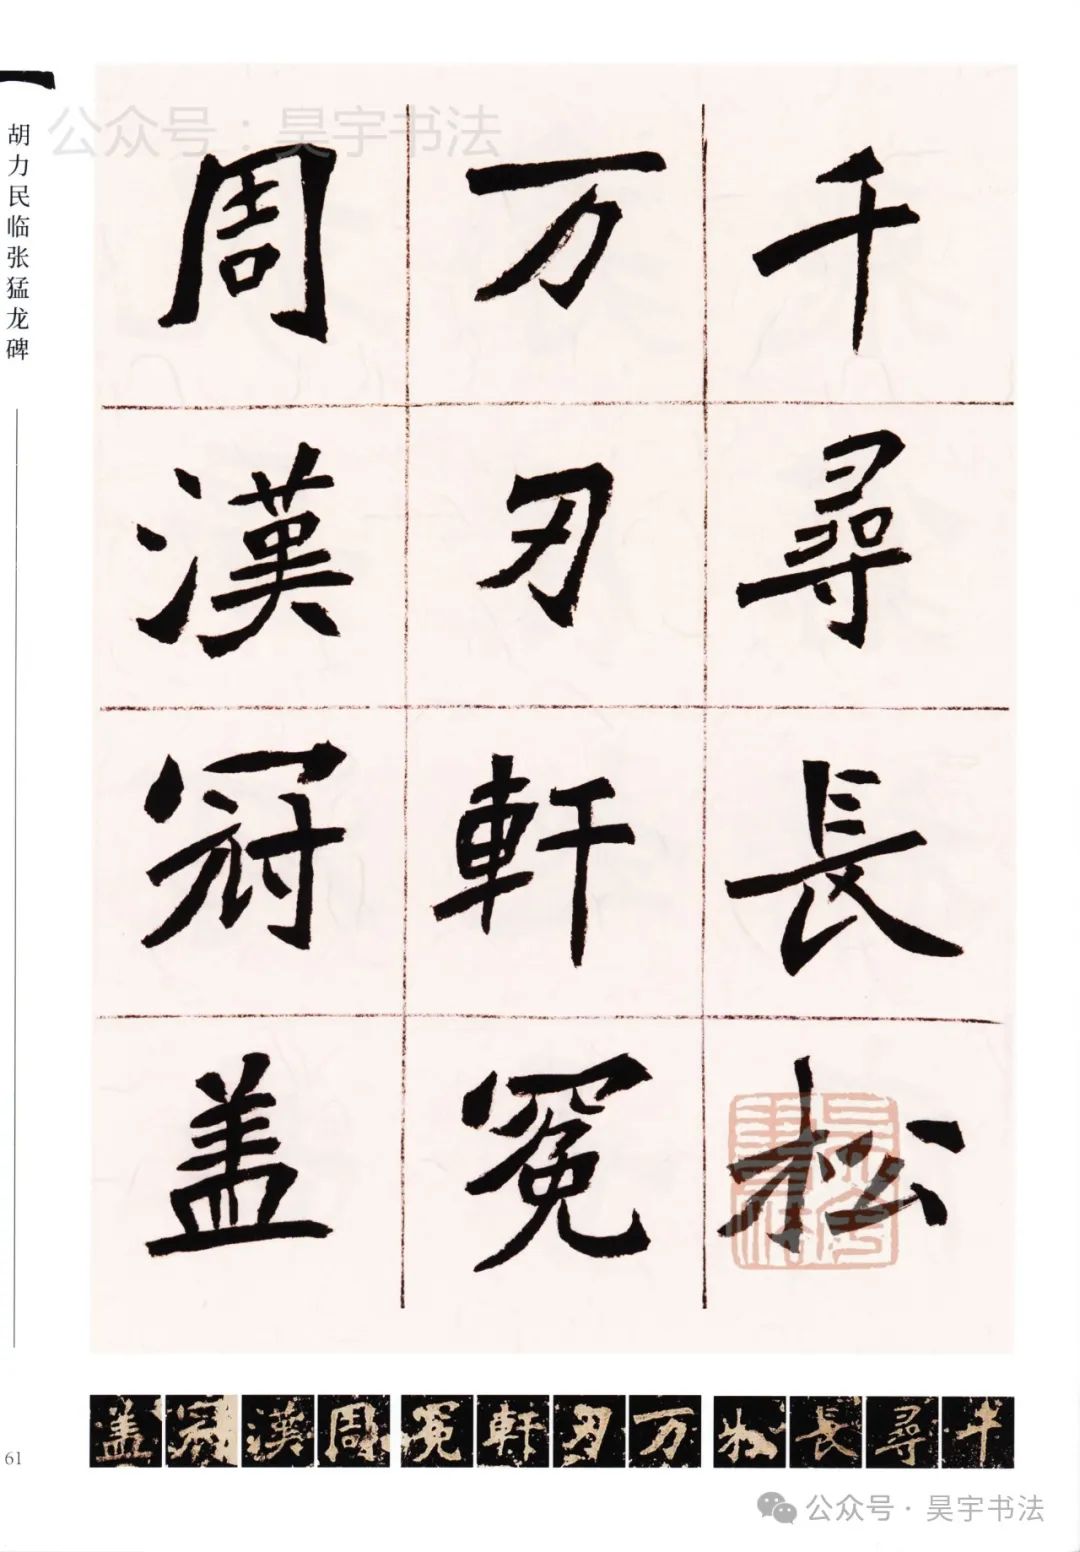 胡力民临张猛龙碑
公众号：昊宇书法
千尋長松
万刃軒冕
周漢冠盖
昊宇書法
千尋長松万刃軒冕周漢冠盖
61
公众号·昊宇书法